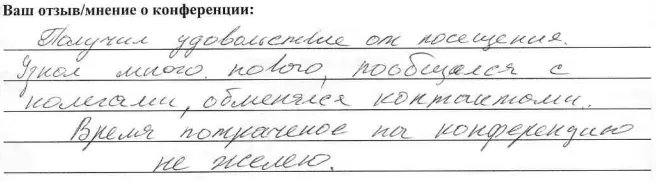 Ваш отзыв/мнение о конференции:
Получил удовольствие от посещения.
Узнал много нового, пообщался с
колегами, обменялся контактами.
Время потраченое на конференцию
не желею.